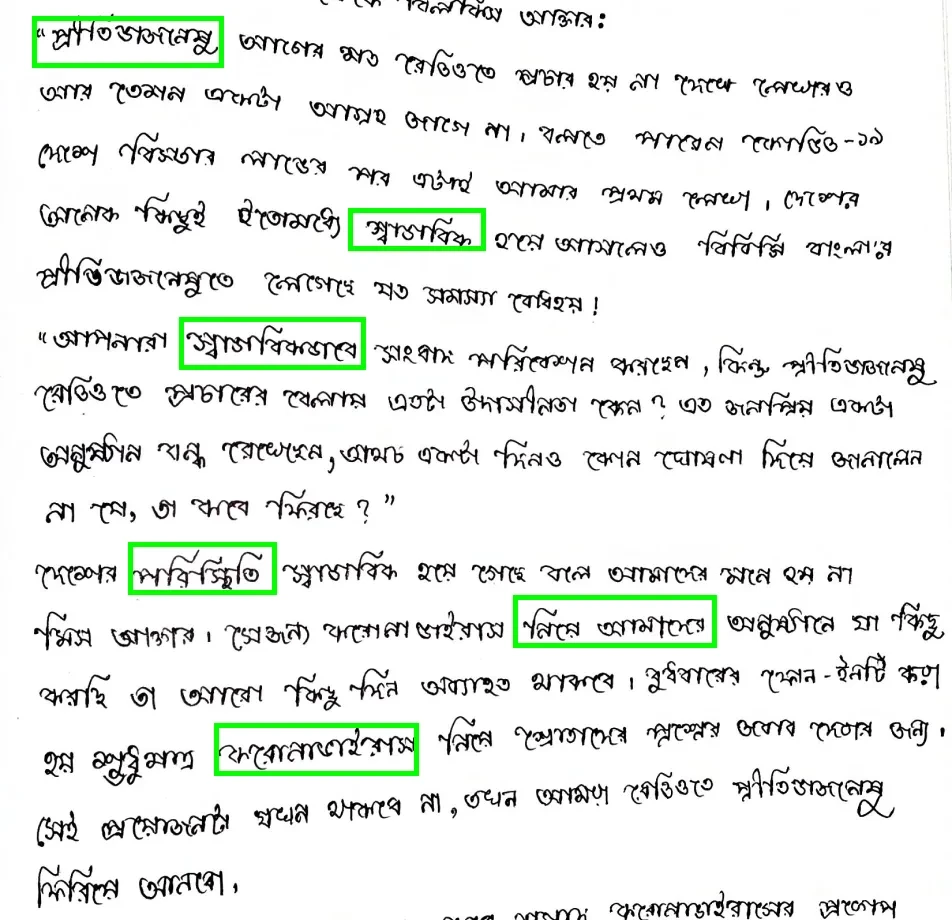 থেকে বিলকিস আক্তার:
"প্রীতিভাজনেষু আগের মত রেডিওতে প্রচার হয় না দেখে লেখারও
আর তেমন একটা আগ্রহ জাগে না। বলতে পারেন কোভিড-১৯
দেশে বিস্তার লাভের পর এটাই আমার প্রথম লেখা। দেশের
অনেক কিছুই ইতোমধ্যে স্বাভাবিক হয়ে আসলেও বিবিসি বাংলা'র
প্রীতিভাজনেষুতে লেগেছে যত সমস্যা বোধহয়!
"আপনারা স্বাভাবিকভাবে সংবাদ পরিবেশন করছেন, কিন্তু প্রীতিভাজনেষু
রেডিওতে প্রচারের বেলায় এতটা উদাসীনতা কেন? এত জনপ্রিয় একটা
অনুষ্ঠান বন্ধ রেখেছেন, অথচ একটা দিনও কোন ঘোষণা দিয়ে জানালেন
না যে, তা কবে ফিরছে?"
দেশের পরিস্থিতি স্বাভাবিক হয়ে গেছে বলে আমাদের মনে হয় না
মিস আক্তার। সেজন্য করোনাভাইরাস নিয়ে আমাদের অনুষ্ঠানে যা কিছু
করছি তা আরো কিছু দিন অব্যাহত থাকবে। বুধবারের ফোন-ইনটি করা
হয় শুধুমাত্র করোনাভাইরাস নিয়ে শ্রোতাদের প্রশ্নের জবাব দেবার জন্য।
সেই প্রয়োজনটা যখন থাকবে না, তখন আমরা রেডিওতে প্রীতিভাজনেষু
ফিরিয়ে আনবো।
করোনাভাইরাসের প্রকোপ